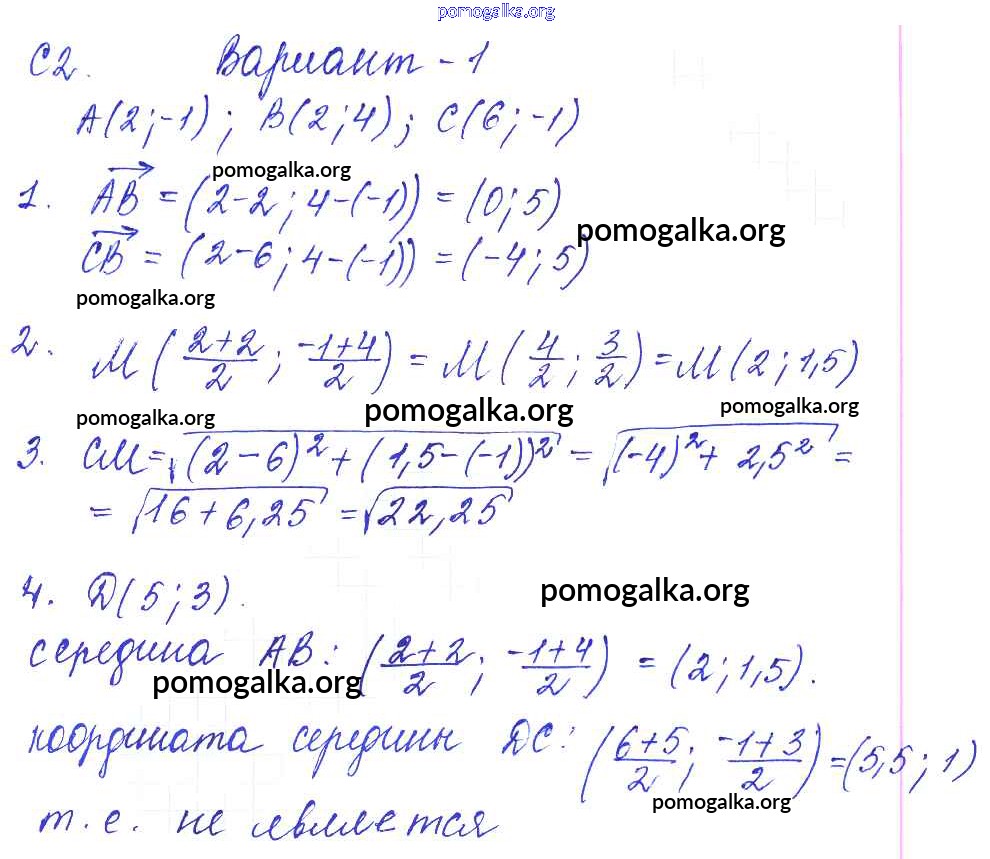 pomogalka.org
С2. Вариант - 1
A(2;-1); B(2;4); C(6;-1)
pomogalka.org
1. AB = (2-2; 4-(-1)) = (0; 5)
pomogalka.org
CB = (2-6; 4-(-1)) = (-4; 5)
pomogalka.org
2. M(2+2/2; -1+4/2) = M(4/2; 3/2) = M(2; 1,5)
pomogalka.org pomogalka.org pomogalka.org
3. CM = √(2-6)² + (1,5-(-1))² = √(-4)² + 2,5² =
= √16 + 6,25 = √22,25
4. D(5; 3).
pomogalka.org
середина AB: (2+2/2; -1+4/2) = (2; 1,5).
pomogalka.org
координата середины DC: (6+5/2; -1+3/2) = (5,5; 1)
pomogalka.org
т.е. не является